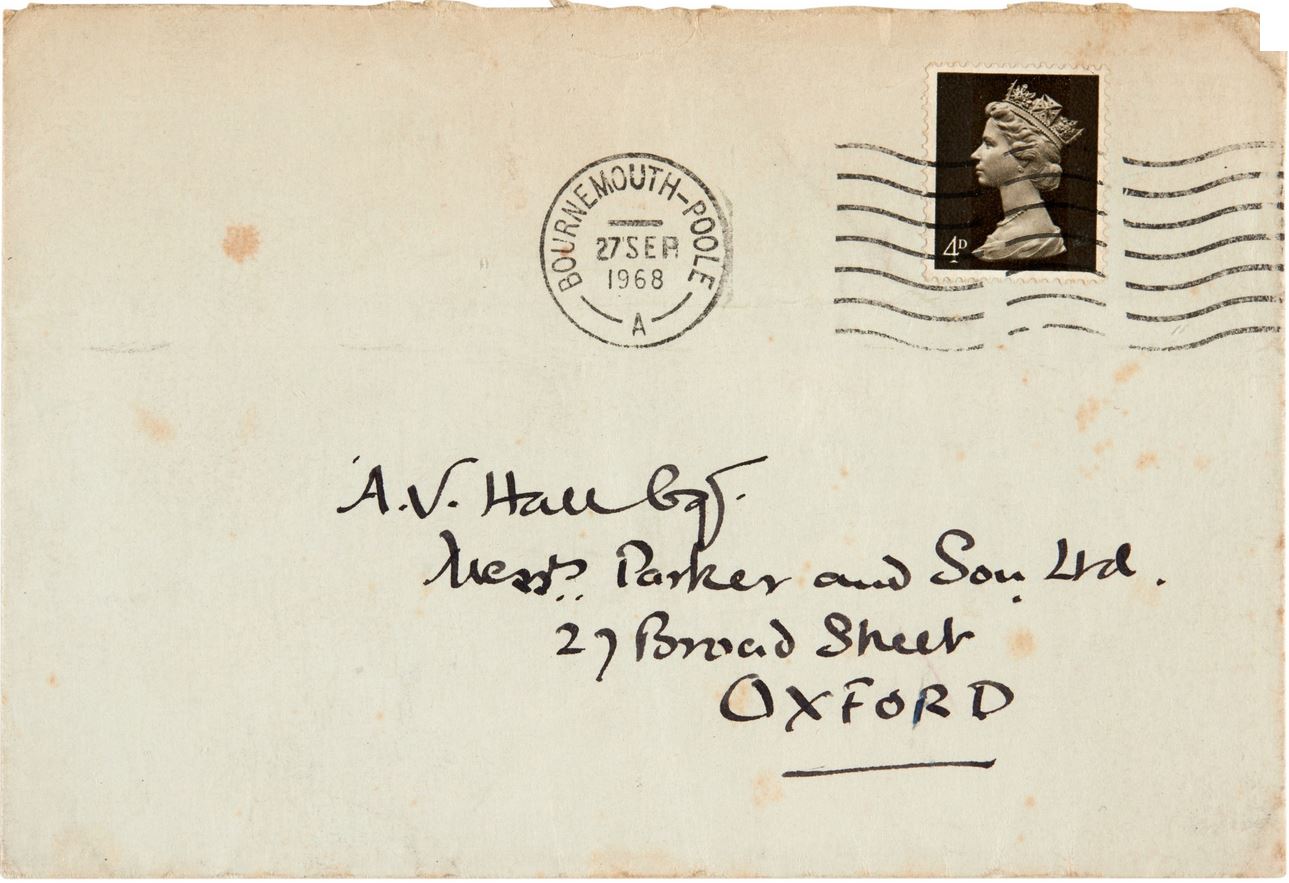 BOURNEMOUTH-POOLE
27 SEP
1968
A
4D
A.V. Hall Esq.
Messrs. Parker and Son Ltd.
27 Broad Street
OXFORD